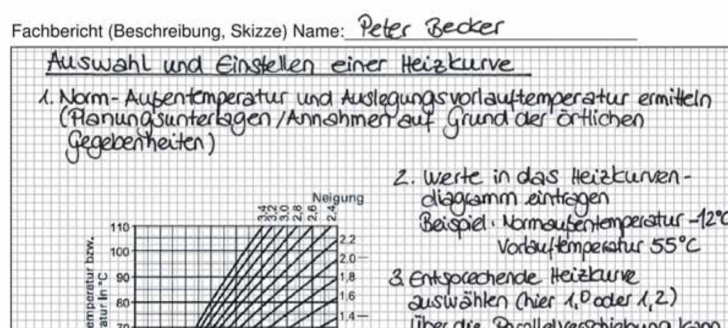 Fachbericht (Beschreibung, Skizze) Name: Peter Becker
Auswahl und Einstellen einer Heizkurve
1. Norm-Außentemperatur und Auslegungsvorlauftemperatur ermitteln
(Planungsunterlagen / Annahmen auf Grund der örtlichen
Gegebenheiten)
2. Werte in das Heizkurven-
diagramm eintragen
Beispiel: Normaußentemperatur -12°C
Vorlauftemperatur 55°C
3. Entsprechende Heizkurve
auswählen (hier 1,0 oder 1,2)
Über die Parallelverschiebung kann
Neigung
3,4 3,2 3,0 2,8 2,6 2,4
2,2
2,0
1,8
1,6
1,4
110
100
90
80
70
emperatur bzw.
atur in °C